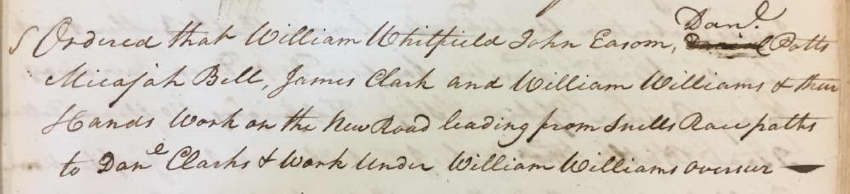 Danl.
Ordered that William Whitfield John Easom, Daniel Potts
Micajah Bell, James Clark and William Williams & their
Hands Work on the New Road leading from Snells Race paths
to Danl Clarks & Work Under William Williams overseer